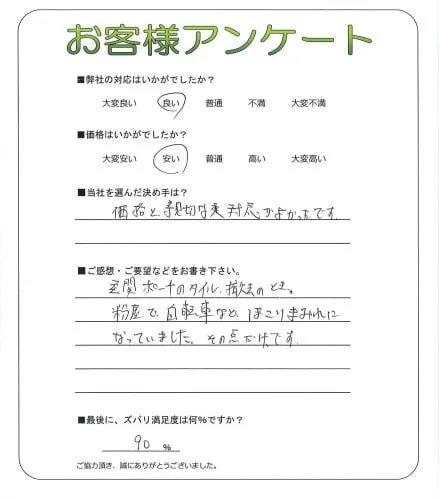 お客様アンケート
■弊社の対応はいかがでしたか?
大変良い 良い 普通 不満 大変不満
■価格はいかがでしたか?
大変安い 安い 普通 高い 大変高い
■当社を選んだ決め手は?
価格と、親切な対応がよかったです。
■ご感想・ご要望などをお書き下さい。
玄関ポーチのタイル、撤去のとき。
粉塵で、自転車など、ほこりまみれに
なっていました。その点だけです。
■最後に、ズバリ満足度は何%ですか?
90 %
ご協力頂き、誠にありがとうございました。